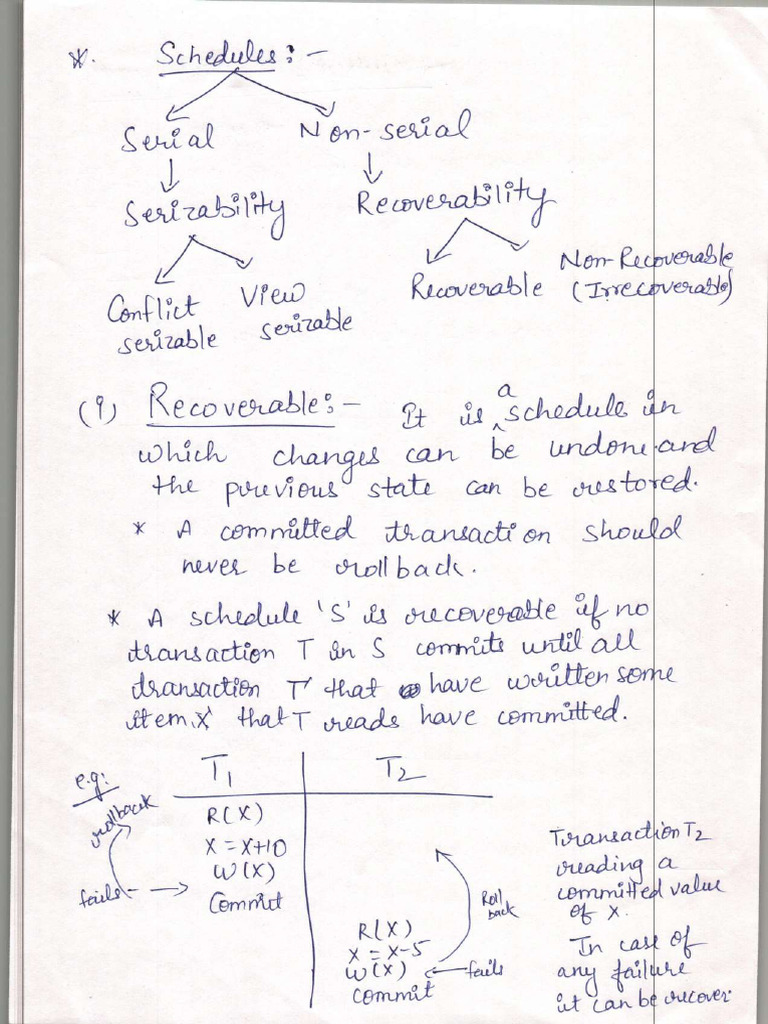 *. Schedules:-
Serial Non-serial
Serizability Recoverability
Conflict serizable View serizable Recoverable Non-Recoverable (Irrecoverable)
(i) Recoverable:- It is a schedule in
which changes can be undone and
the previous state can be restored.
* A committed transaction should
never be rollback.
* A schedule 'S' is recoverable if no
transaction T in S commits until all
transaction T' that have written some
item X that T reads have committed.
e.g:
T1 T2
rollback
R(X)
X = X+10
W(X)
fails Commit
R(X)
X = X-5
W(X) fails
Commit
Roll
back
Transaction T2
reading a
committed value
of X.
In case of
any failure
it can be recover